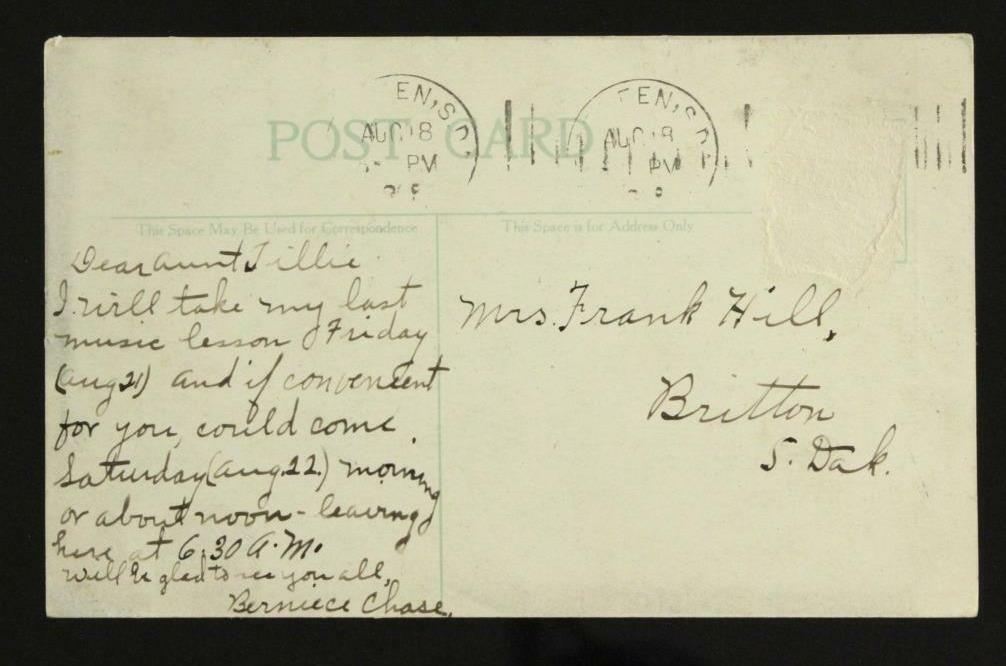 EN, S.D. TEN, S.D.
POST CARD
AUG 18 AUG 18
PM PM
This Space May Be Used for Correspondence
This Space is for Address Only
Dear Aunt Tillie
I will take my last
music lesson Friday
(Aug 21) and if convenient
for you, could come
Saturday (Aug. 22.) morning
or about noon - leaving
here at 6:30 A.M.
Will be glad to see you all,
Berniece Chase.
Mrs. Frank Hill,
Britton
S. Dak.